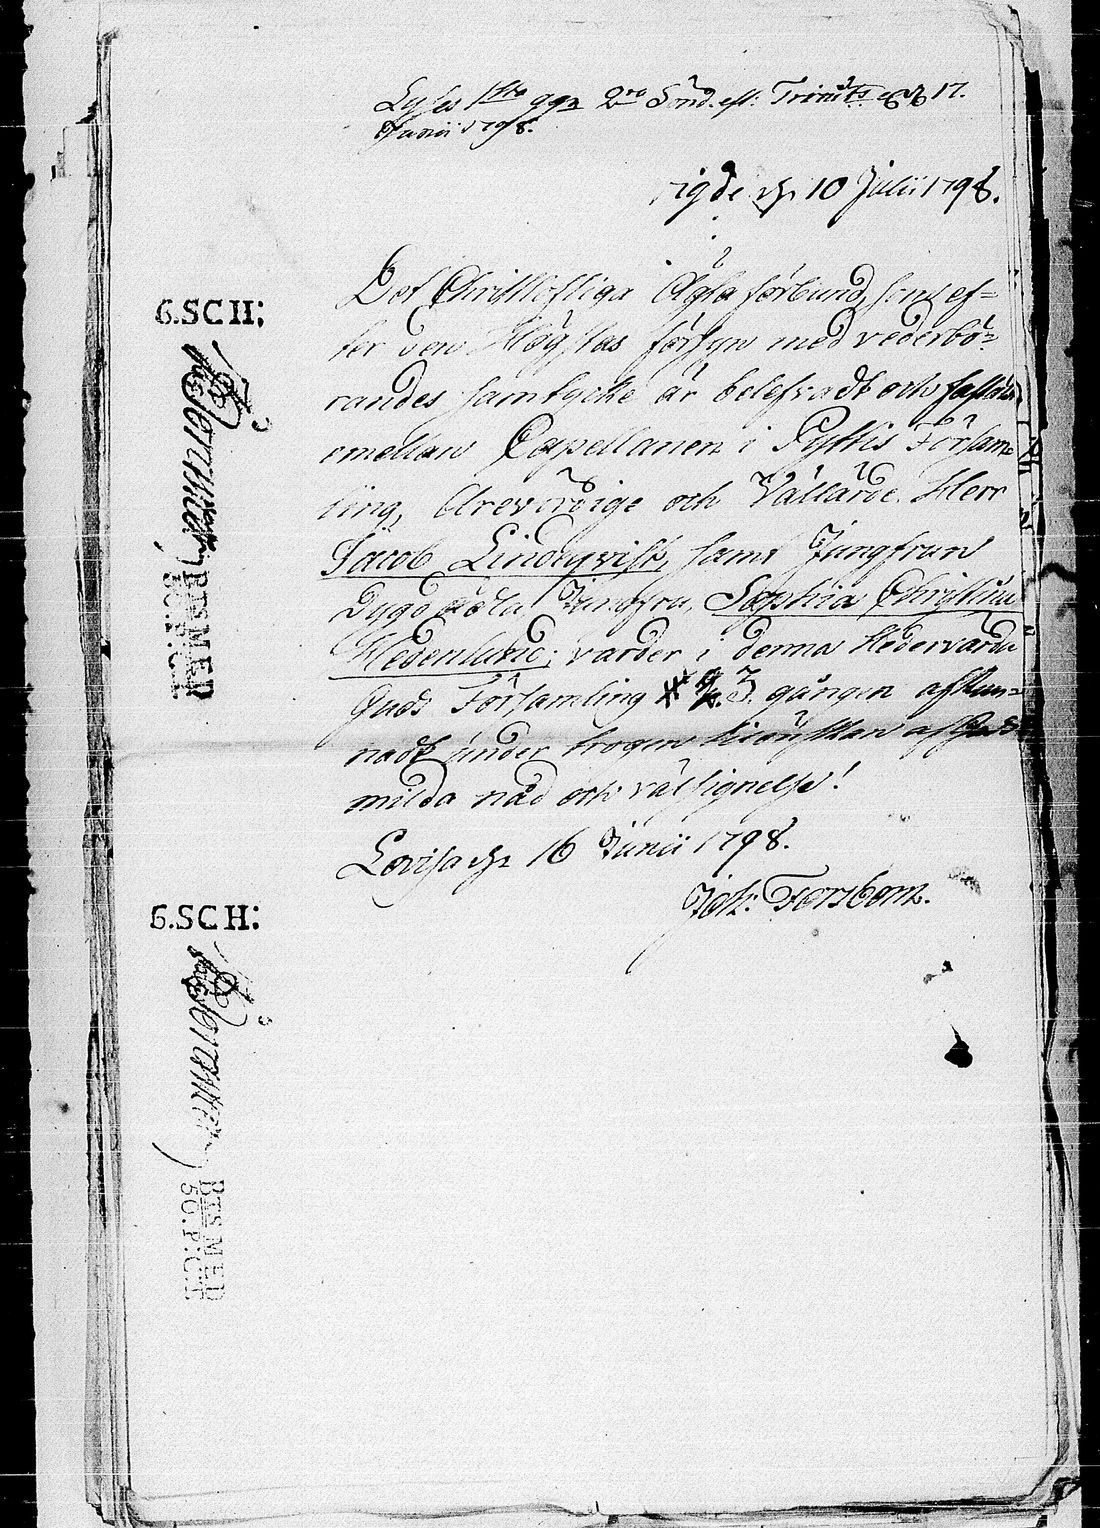 Lyses 1sta ggn 2dra Sönd. eft. Trinit:s 17.
Junii 1798.
vigde d. 10 Julii 1798.
Det Christlofliga Ägta förbund, som ef=
ter den Högstas försyn med vederbö=
randes samtycke är belefvadt och
emellan Capellanen i Pyttis Församl=
ling, Ärevördige och Vällärde Herr
Jacob Lindeqvist, samt Jungfrun
Dygdädla Jungfru, Sophia Christina
Hedenlund; varder i denna Hedervärda
Guds Församling 3. gången afkun=
nadt under trogen önskan af Guds
milda nåd och välsignelse!
Lovisa d. 16 Junii 1798.
Joh: Forsbom.
6.SCH:
BTS MED
SC.P:C.
6.SCH:
BTS MED
SC.P:C.